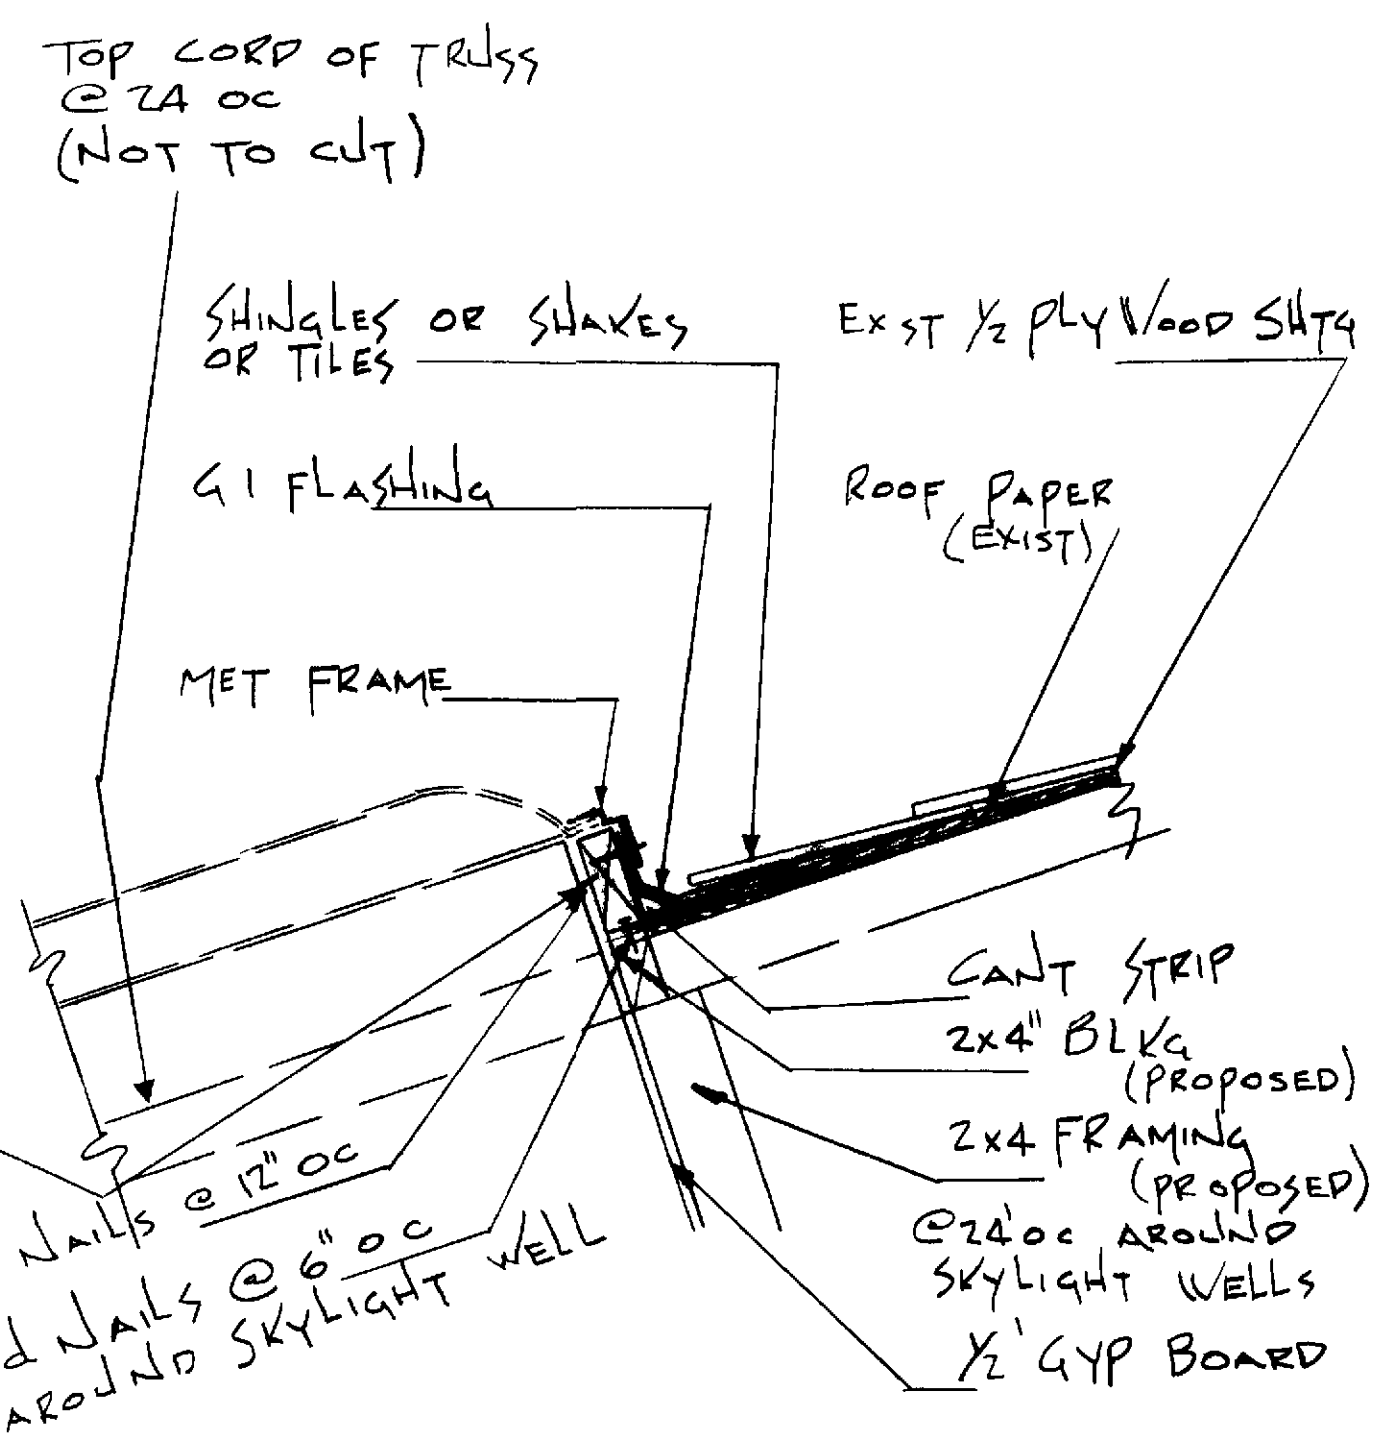 TOP CORD OF TRUSS
@ 24 OC
(NOT TO CUT)
SHINGLES OR SHAKES
OR TILES
EXST 1/2 PLYWOOD SHTG
GI FLASHING
ROOF PAPER
(EXIST)
MET FRAME
CANT STRIP
2x4" BLKG
(PROPOSED)
2x4 FRAMING
(PROPOSED)
@24' OC AROUND
SKYLIGHT WELLS
1/2' GYP BOARD
NAILS @ 12" OC
d NAILS @ 6" OC
AROUND SKYLIGHT WELL